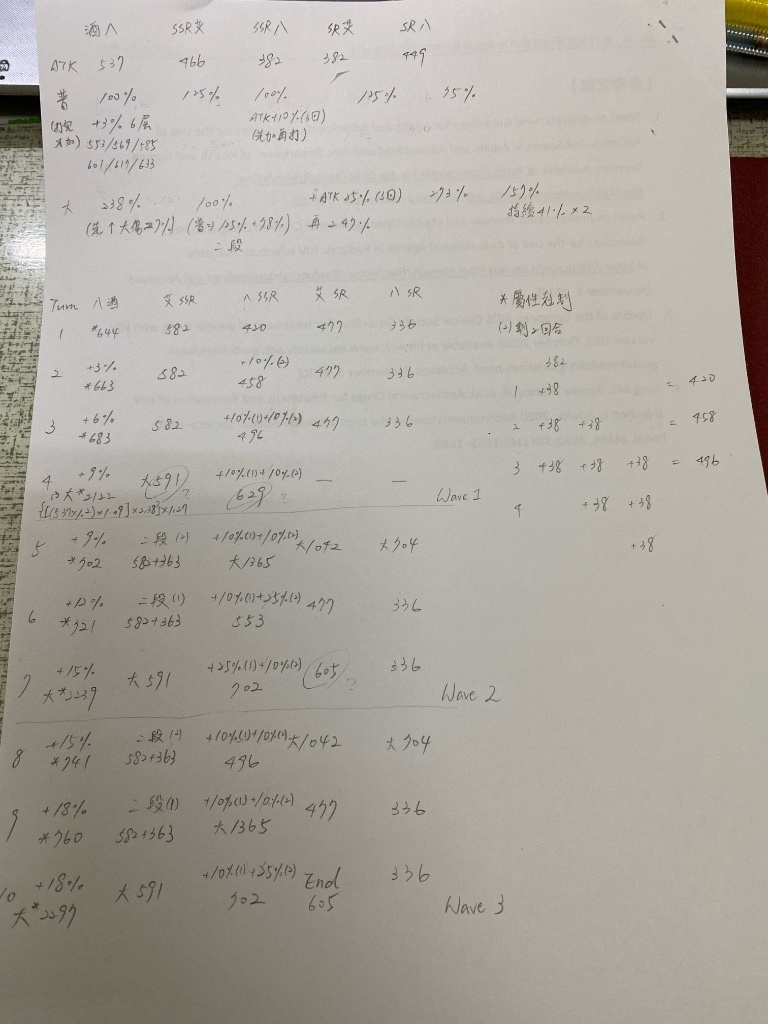 酒八 SSR艾 SSR八 SR艾 SR八
ATK 537 466 382 382 449
普 100% 125% 100% 125% 75%
+3% 6层 ATK+10%(3回)
553/569/585 (先加再打)
601/617/633
大 238% 100% +ATK 25%(3回) 273% 157%
(普→125%+78%) 再247% 持续41%×2
二段
Turn 八酒 艾SSR 八SSR 艾SR 八SR *屬性剋制
1 *644 582 420 477 336 (2)剩2回合
2 +3% 582 +10%(2) 477 336 382
*663 458 1 +38 = 420
3 +6% 582 +10%(1)+10%(2) 477 336 2 +38 +38 = 458
*683 496 3 +38 +38 +38 = 496
4 +9% 大591? +10%(1)+10%(2) — — Wave 1 4 +38 +38
大*2122 629? +38
{[(537×1.2)×1.09]×2.38}×1.27
5 +9% 二段(2) +10%(1)+10%(2) 大1042 大704
*702 582+363 大1365
6 +12% 二段(1) +10%(1)+25%(2) 477 336
*721 582+363 553
7 +15% 大591 +25%(1)+10%(2) 605? 336
大*2239 702 Wave 2
8 +15% 二段(2) +10%(1)+10%(2) 大1042 大704
*741 582+363 496
9 +18% 二段(1) +10%(1)+10%(2) 477 336
*760 582+363 大1365
10 +18% 大591 +10%(1)+25%(2) End 336
大*2297 702 605 Wave 3